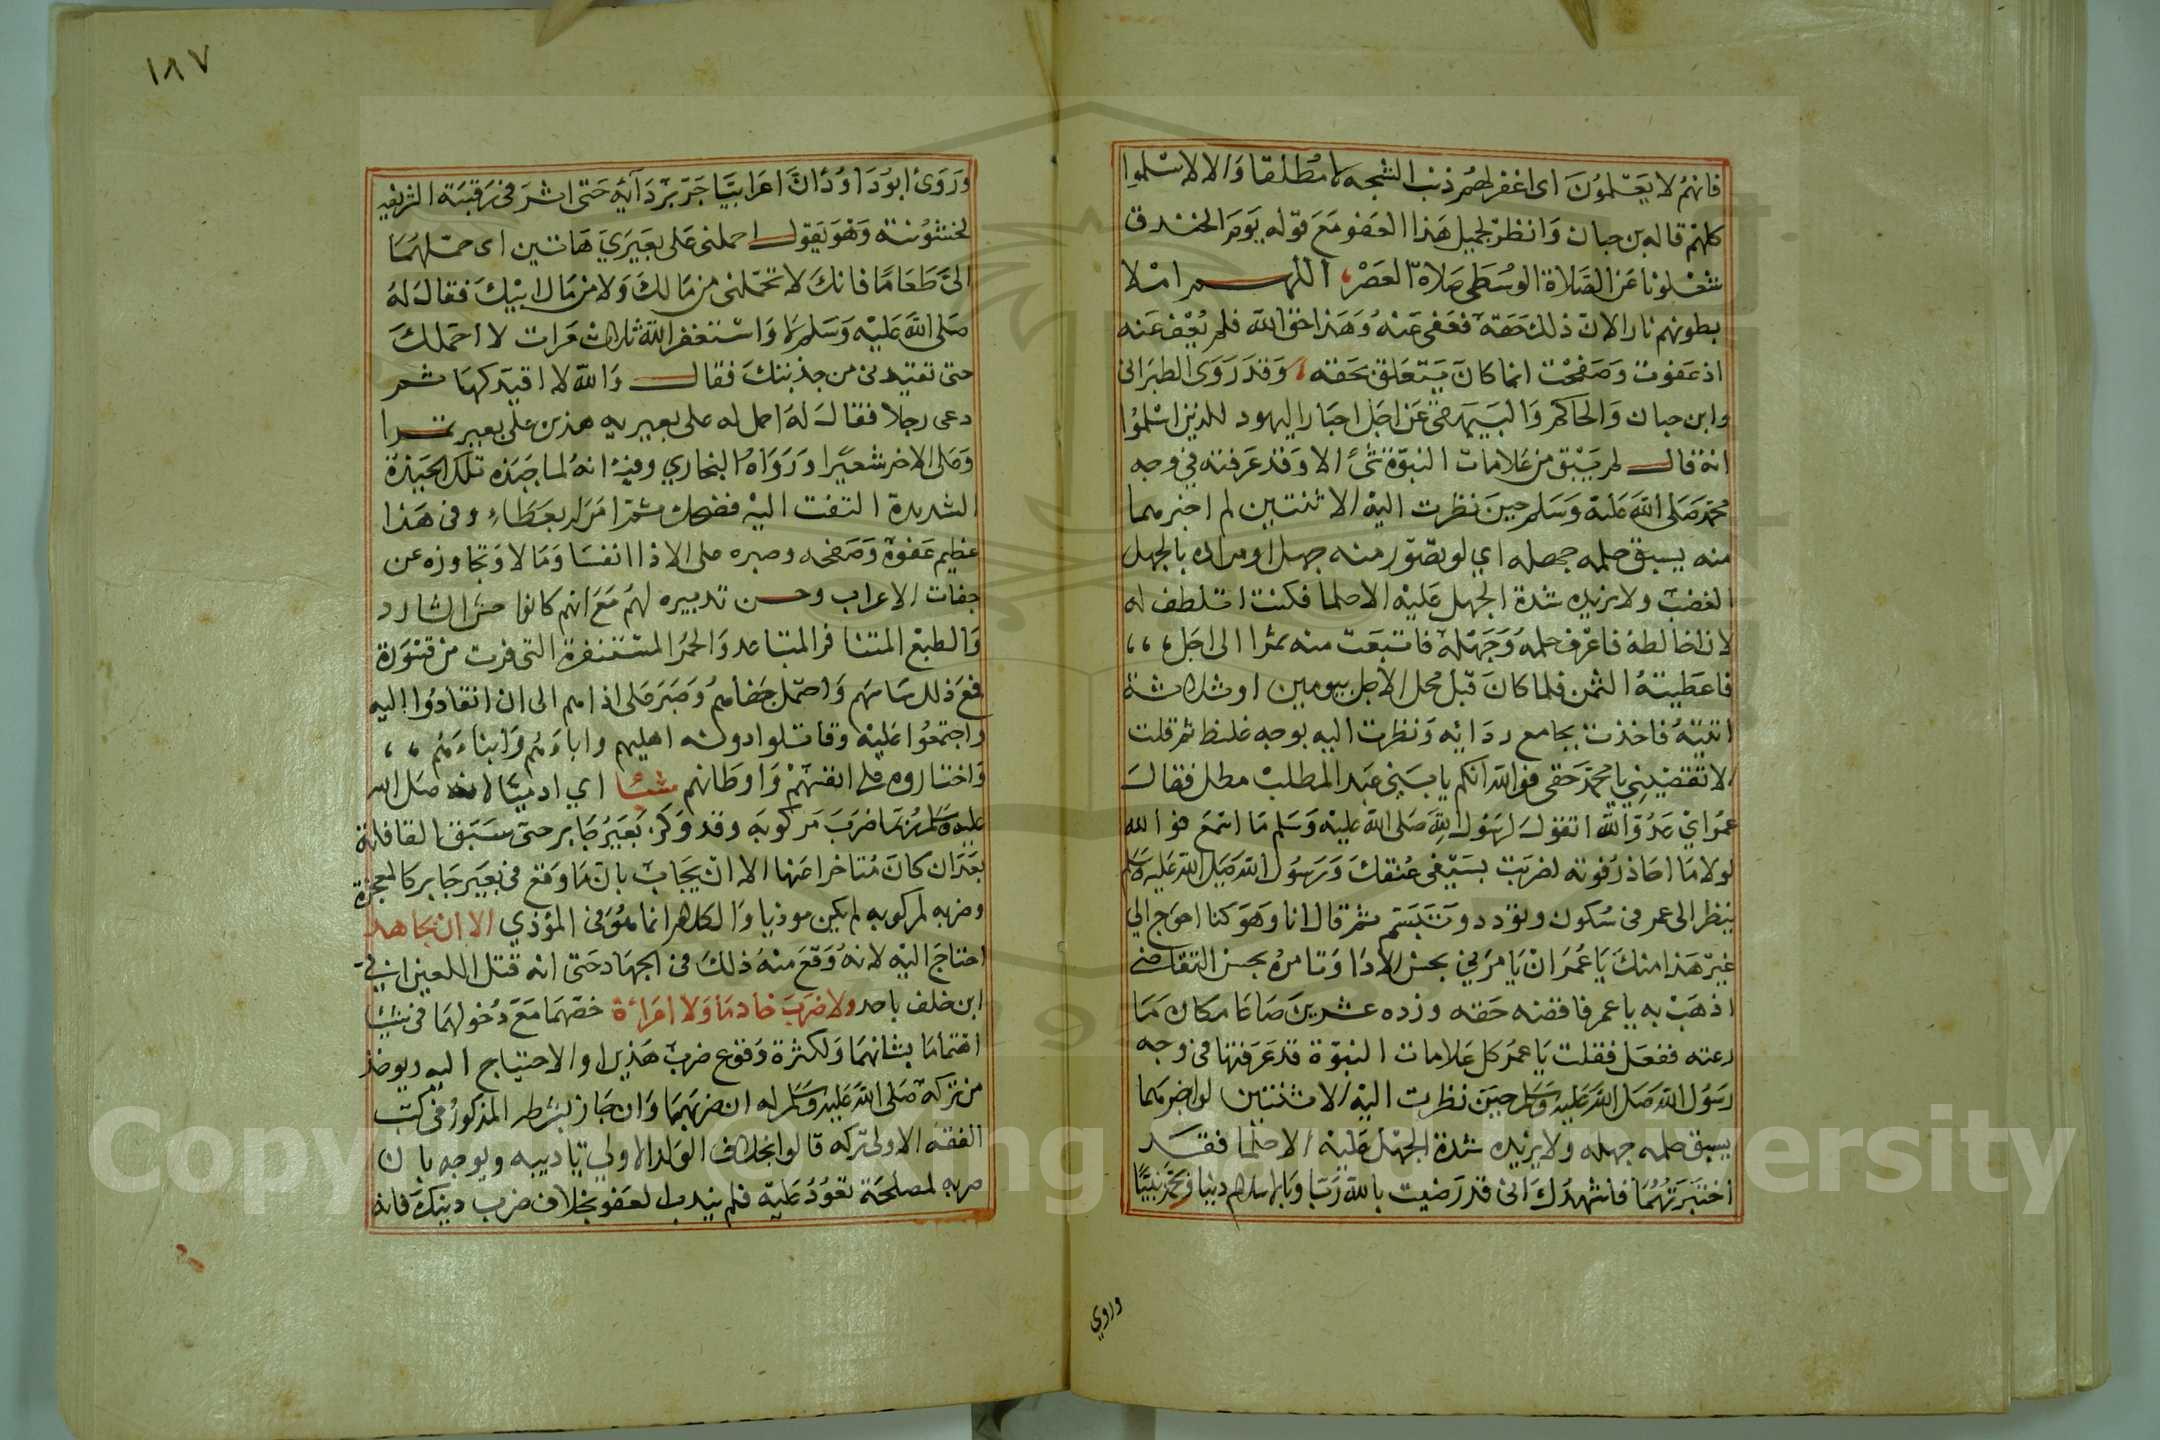 فانهم لا يعلمون اى اغفر لهم ذنب الشجه لا مطلقا والا لاسلموا
كلهم قاله بن حبان وانظر لجميل هذا العفو مع قوله يوم الخندق
شغلونا عن الصلاة الوسطى صلاة العصر اللهم املا
بطونهم نارا لان ذلك حقه فعفى عنه وهذا حق الله فلم يعف عنه
اذ عفوت وصفحت انما كان يتعلق بحقه وقد روى الطبرانى
وابن حبان والحاكم والبيهقى عن اجل احبار اليهود للذين اسلموا
انه قال لم يبق من علامات النبوة شئ الا وقد عرفته في وجه
محمد صلى الله عليه وسلم حين نظرت اليه الا ثنتين لم اخبرهما
منه يسبق حلمه جهله اي لو تصور منه جهل او مراده بالجهل
الغضب ولا يزيده شدة الجهل عليه الا حلما فكنت اتلطف له
لان اخالطه فاعرف حلمه وجهله فاتبعت منه تمرا الى اجل
فاعطيته الثمن فلما كان قبل محل الاجل بيومين او ثلاثة
اتيته فاخذت بجامع ردائه ونظرت اليه بوجه غليظ ثم قلت
الا تقضينى يا محمد حقى فوالله انكم يا بنى عبد المطلب مطل فقال
عمر اي عدو الله اتقول لرسول الله صلى الله عليه وسلم ما اسمع فوالله
لولا ما احاذر فوته لضربت بسيفى عنقك ورسول الله صلى الله عليه وسلم
ينظر الى عمر فى سكون وتودد وتبسم ثم قال انا وهو كنا احوج الي
غير هذا منك يا عمر ان يامرنى بحسن الادا وتامره بحسن التقاضى
اذهب به يا عمر فاقضه حقه وزده عشرين صاعا مكان ما
رعته ففعل فقلت يا عمر كل علامات النبوة قد عرفتها فى وجه
رسول الله صلى الله عليه وسلم حين نظرت اليه الا ثنتين لم اخبرهما
يسبق حلمه جهله ولا يزيده شدة الجهل عليه الا حلما فقد
اختبرتهما فاشهدك انى قد رضيت بالله ربا وبالاسلام دينا وبمحمد نبيا
وروي
١٨٧
وروى ابو داود ان اعرابيا جر بردائه حتى اثر فى رقبته الشريفه
لخشونته وهو يقول احملنى على بعيري هاتين اى حملهما
الى طعاما فانك لا تحملنى من مالك ولا من مال ابيك فقال له
صلى الله عليه وسلم لا واستغفر الله ثلاث مرات لا احملك
حتى تقيدنى من جذبتك فقال والله لا اقيدكها ثم
دعى رجلا فقال له احمل له على بعيريه هذين على بعير تمرا
وعلى الاخر شعيرا ورواه البخاري وفيه انه لما جبذه تلك الجبذة
الشديدة التفت اليه فضحك ثم امر له بعطاء وفى هذا
عظيم عفوه وصفحه وصبره على الاذا انفسا ومالا وتجاوزه عن
جفات الاعراب وحسن تدبيره لهم مع انهم كانوا حش الشارد
والطبع المتنافر المتباعد والحمر المستنفرة التى فرت من قسورة
فمع ذلك ساسهم واحتمل جفاهم وصبر على اذاهم الى ان انقادوا اليه
واجتمعوا عليه وقاتلوا دونه اهليهم واباءهم وابناءهم
واختاروه على انفسهم واوطانهم شئا اي ادميا لانه صلى الله
عليه وسلم ربما ضرب مركوبه وقد وكز بعير جابر حتى سبق القافلة
بعد ان كان متاخرا عنها الا ان يجاب بان ما وقع فى بعير جابر كالمعجزة
وضربه لمركوبه لم يكن موذيا والكلام انما هو فى المؤذي الا ان يجاهد
احتاج اليه لانه وقع منه ذلك فى الجهاد حتى انه قتل اللعين ابي
ابن خلف باحد ولا ضرب خادما ولا امراءة خصهما مع دخولهما فى شيئا
اهتماما بشانهما ولكثرة وقوع ضرب هذين والاحتياج اليه ويوخذ
من تركه صلى الله عليه وسلم له ان ضربهما وان جاز بشرطه المذكور فى كتب
الفقه الاولى تركه قالوا بخلاف الولد الاولى تاديبه ويوجه بان
ضربه لمصلحة تعود عليه فلم يندب العفو بخلاف ضرب دينك فانه